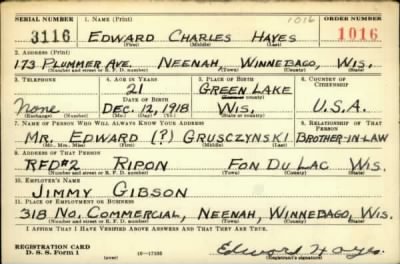 SERIAL NUMBER 1. NAME (Print) 1016 ORDER NUMBER
3116 EDWARD CHARLES HAYES 1016
(First) (Middle) (Last)
2. ADDRESS (Print)
173 PLUMMER AVE. NEENAH, WINNEBAGO, WIS.
(Number and street or R. F. D. number) (Town) (County) (State)
3. TELEPHONE 4. AGE IN YEARS 5. PLACE OF BIRTH 6. COUNTRY OF CITIZENSHIP
21 GREEN LAKE
DATE OF BIRTH (Town or county)
None DEC. 12, 1918 WIS. U.S.A.
(Exchange) (Number) (Mo.) (Day) (Yr.) (State or country)
7. NAME OF PERSON WHO WILL ALWAYS KNOW YOUR ADDRESS 8. RELATIONSHIP OF THAT PERSON
MR. EDWARD (?) GRUSCZYNSKI BROTHER-IN-LAW
(Mr., Mrs., Miss) (First) (Middle) (Last)
9. ADDRESS OF THAT PERSON
RFD#2 RIPON FON DU LAC WIS.
(Number and street or R. F. D. number) (Town) (County) (State)
10. EMPLOYER'S NAME
JIMMY GIBSON
11. PLACE OF EMPLOYMENT OR BUSINESS
318 NO. COMMERCIAL, NEENAH, WINNEBAGO, WIS.
(Number and street or R. F. D. number) (Town) (County) (State)
I AFFIRM THAT I HAVE VERIFIED ABOVE ANSWERS AND THAT THEY ARE TRUE.
REGISTRATION CARD
D. S. S. Form 1 (over) 16—17105 Edward Hayes
(Registrant's signature)